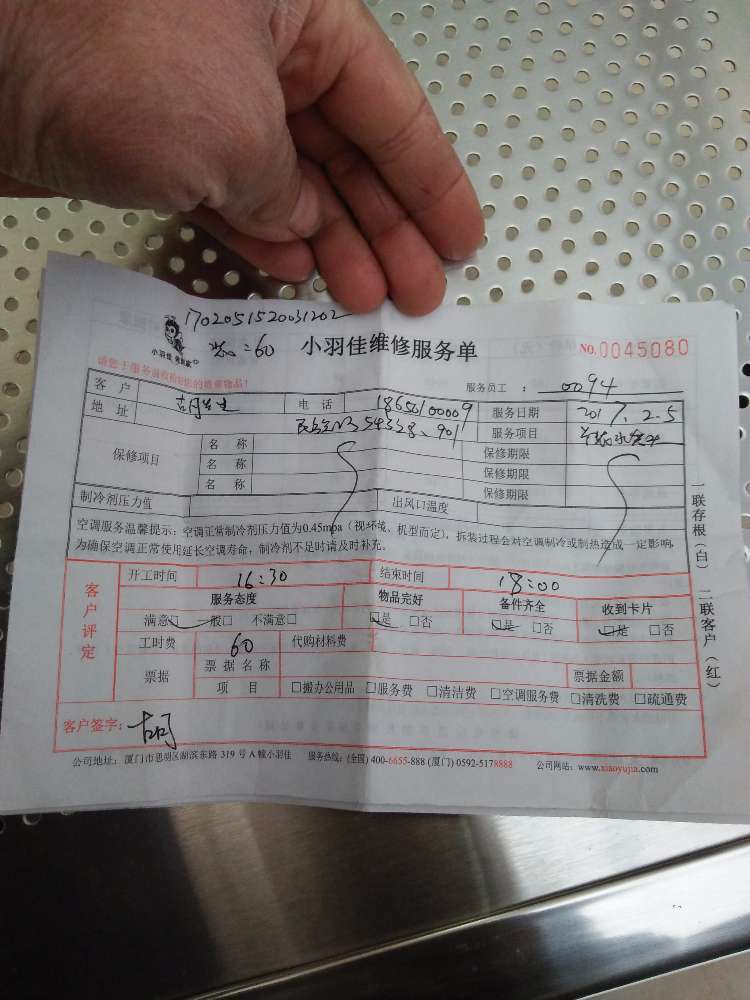 1702051520031202
小羽佳 售到家
:60 小羽佳维修服务单 NO.0045080
服务员工 : 0094
客户 胡先生 电话 18650100009 服务日期 2017.2.5
地址 服务项目
保修项目 名称 保修期限
名称 保修期限
名称 保修期限
制冷剂压力值 出风口温度
空调服务温馨提示:空调正常制冷剂压力值为0.45mpa(视环境、机型而定),拆装过程会对空调制冷或制热造成一定影响,
为确保空调正常使用延长空调寿命,制冷剂不足时请及时补充。
客户评定
开工时间 16:30 结束时间 18:00
服务态度 物品完好 备件齐全 收到卡片
满意□ 一般□ 不满意□ □是 □否 □是 □否 □是 □否
工时费 60 代购材料费
票据 票据名称 票据金额
项目 □搬办公用品 □服务费 □清洁费 □空调服务费 □清洗费 □疏通费
客户签字: 胡
公司地址:厦门市思明区湖滨东路 319 号 A 幢小羽佳 服务热线:(全国) 400-6655-888 (厦门) 0592-5178888 公司网站:www.xiaoyujia.com
一联存根(白) 二联客户(红)